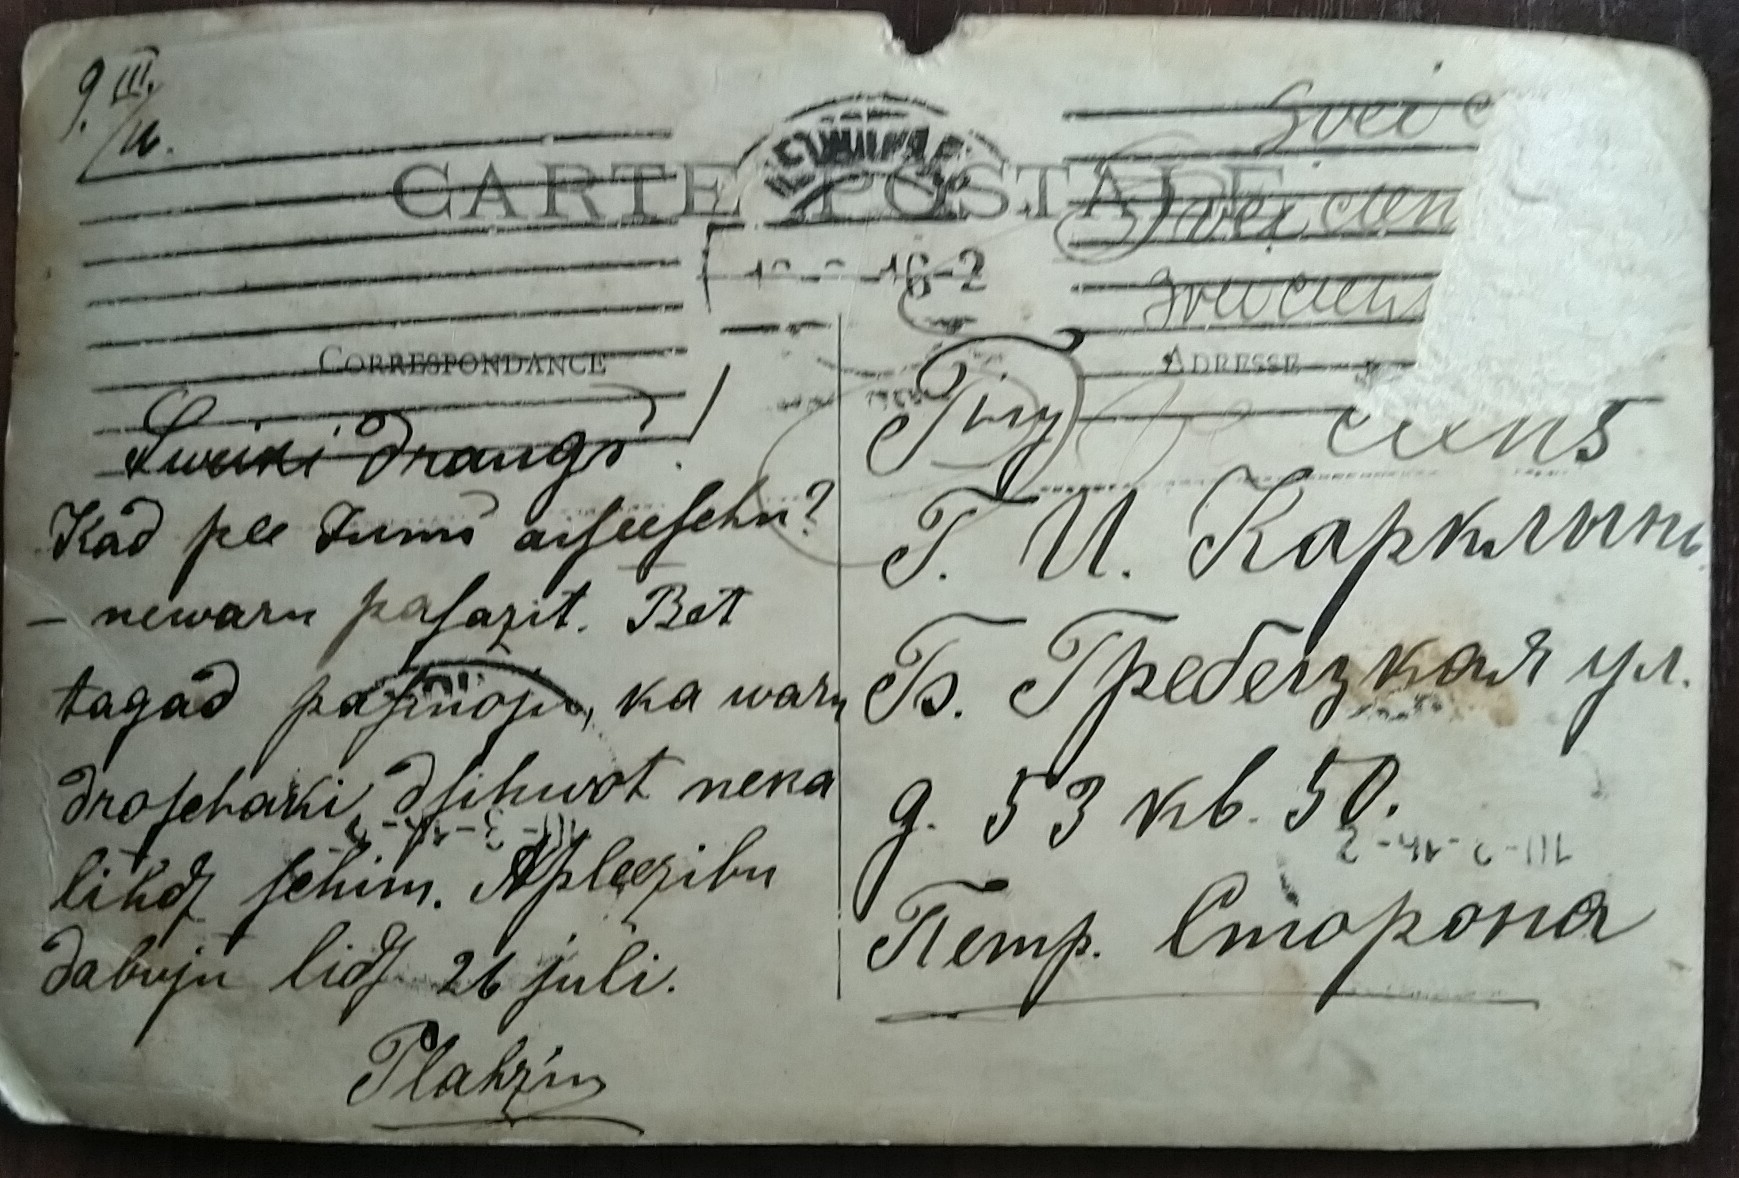 9. III.
16.
CARTE POSTALE
16-2
CORRESPONDANCE
ADRESSE
Sweiki draugs!
Kad pee Jums aisseeschu?
– newaru pasazit. Bet
tagad pasinoju, ka waru
droschaki dsihwot neka
lihds schim. Apleezibu
dabuju lids 26 juli.
Plahziņ
Svei
Sveicien
Sveiciens
ciens
Г. И. Карклынь.
Б. Гребецкая ул.
д. 53 кв. 50.
Петр. Сторона